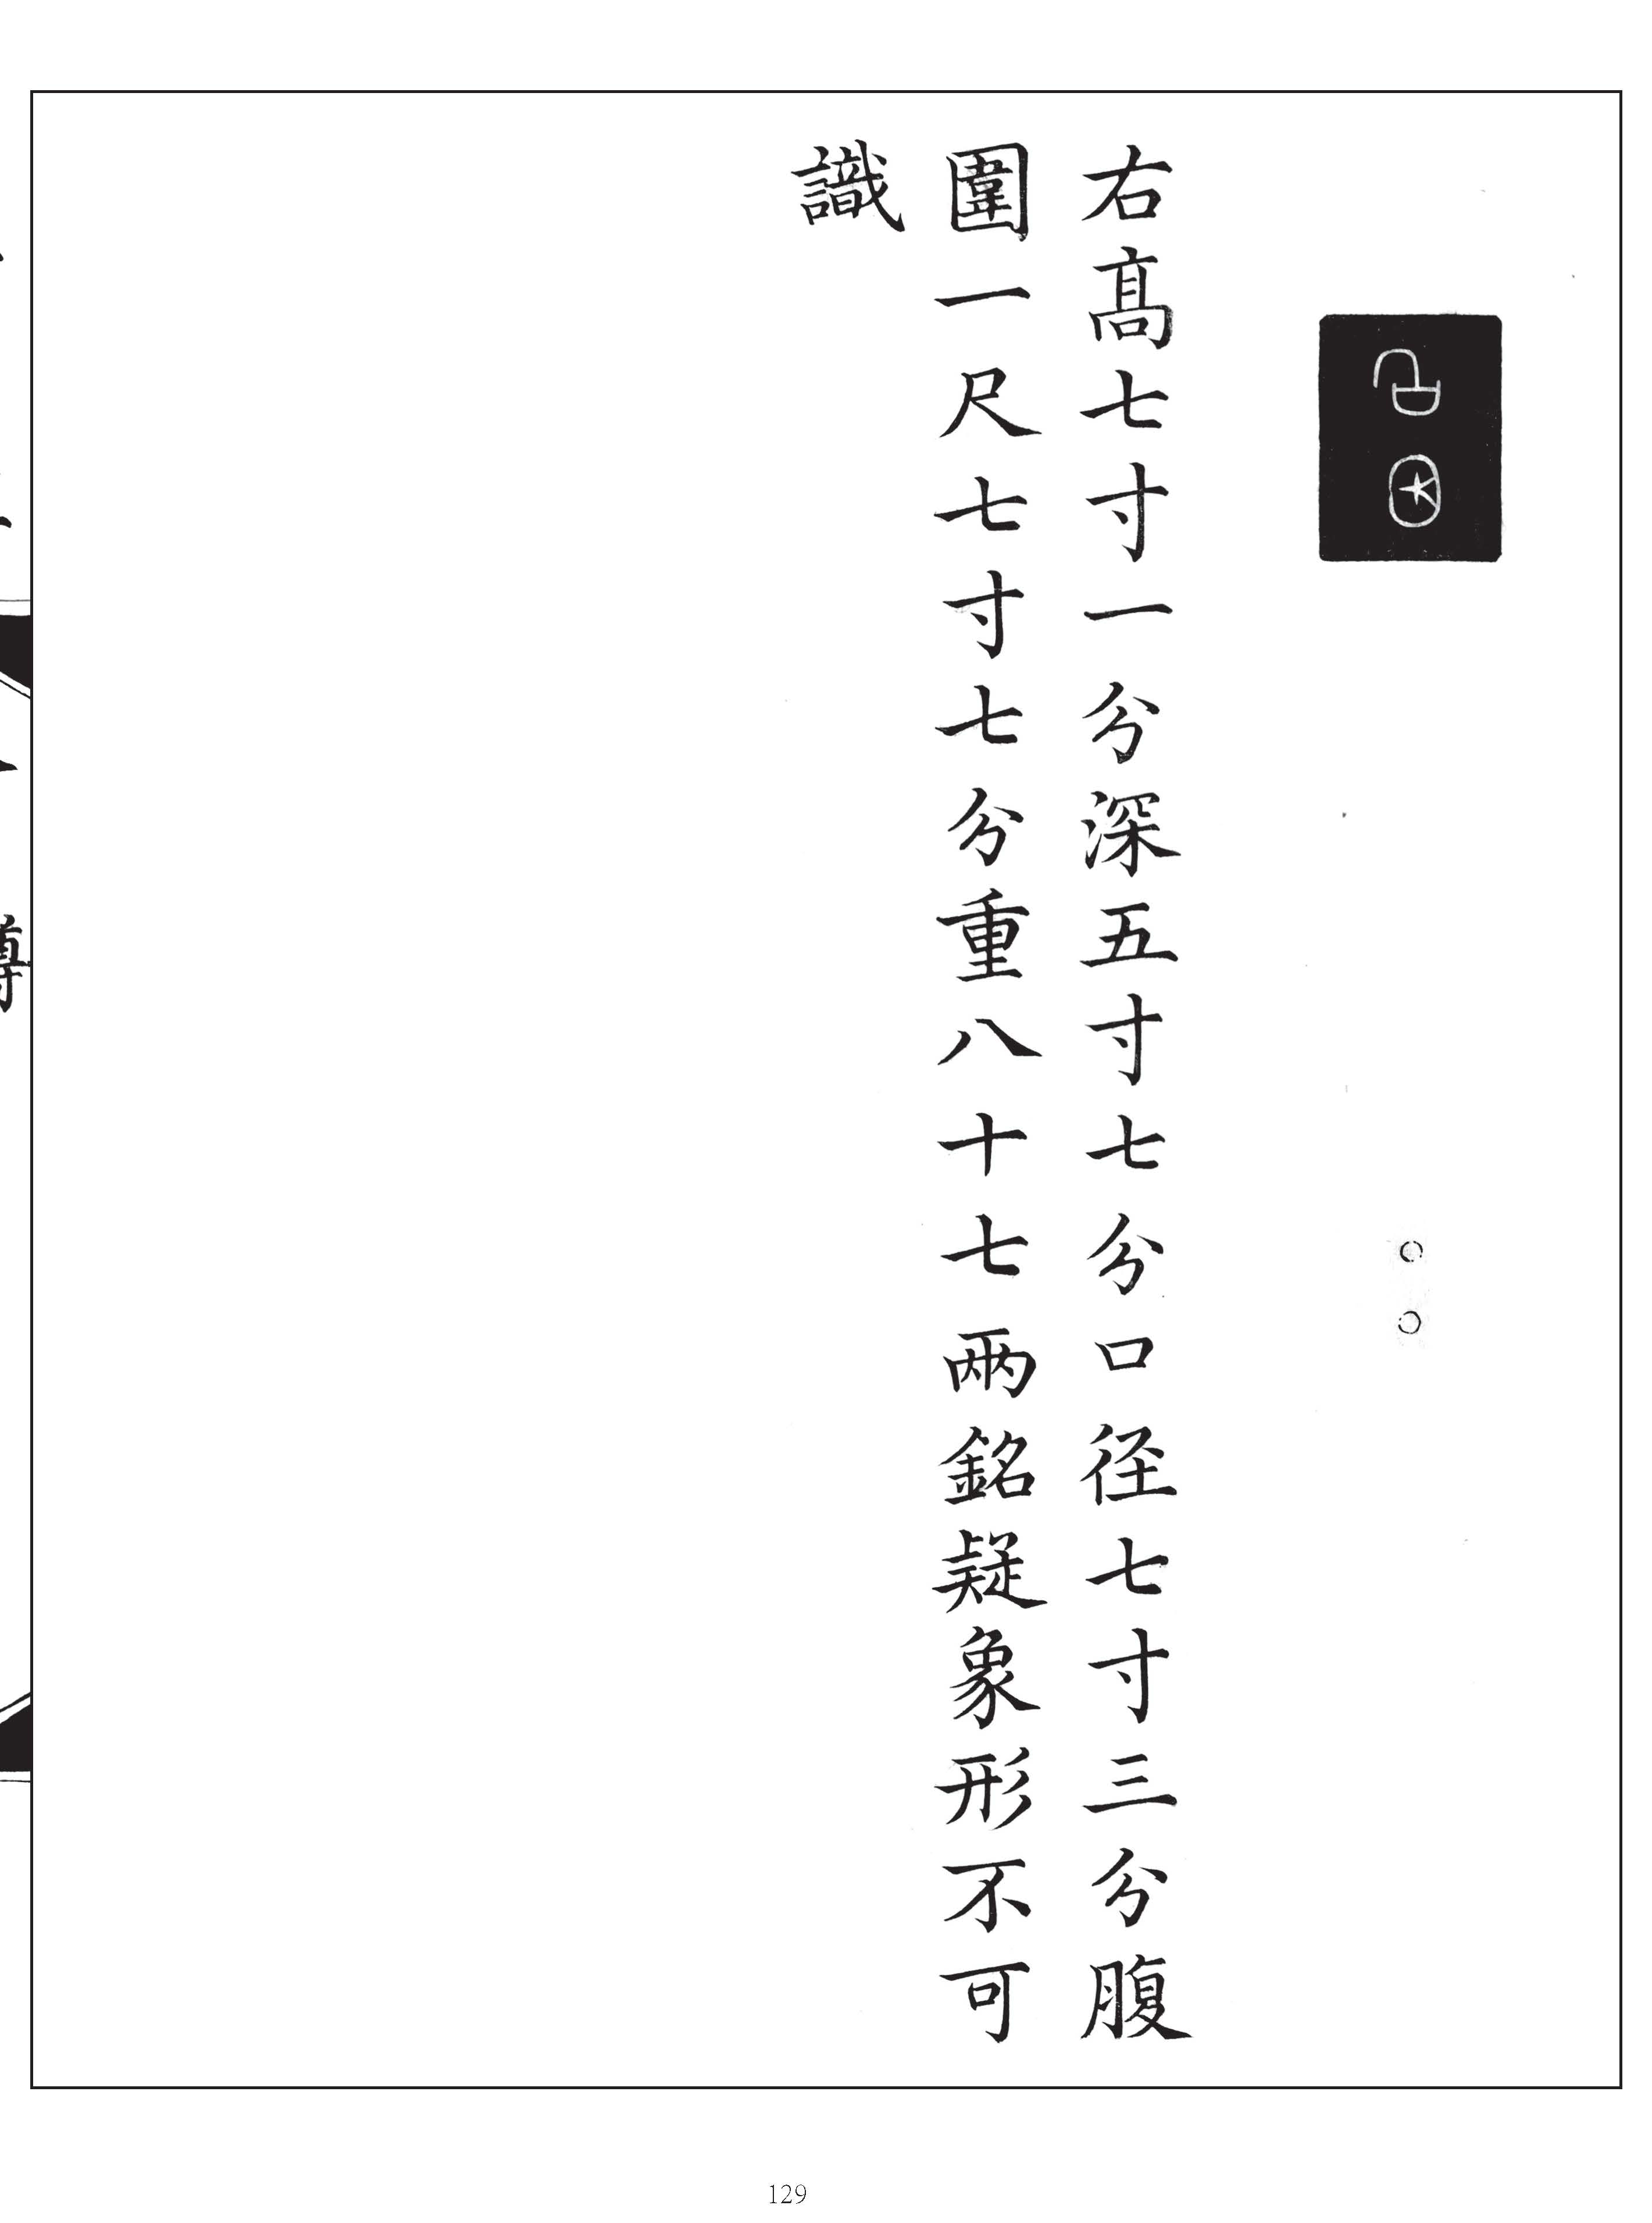 ○
○
右高七寸一分深五寸七分口径七寸三分腹
圍一尺七寸七分重八十七兩銘疑象形不可
識
129